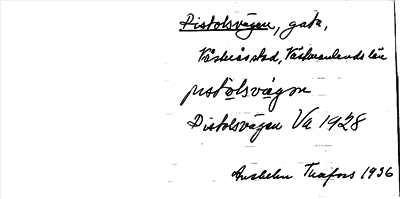 Pistolsvägen, gata,
Västerås stad, Västmanlands län
pistolsvägen
Pistolsvägen Va 1928
Anshelm Tuafors 1936